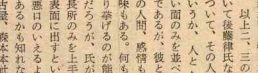 以上二、三の
いて後藤律氏な
ついて、その人
いうか、人と
い面のみを並べ
であるが、彼と
の人間、感情も
味もある。何も
り挙げるのが能
だろうが、氏が
長所のみを上手
表面に出すと、
悪口のいえるよ
あるかも知れな
古畳、森本本社